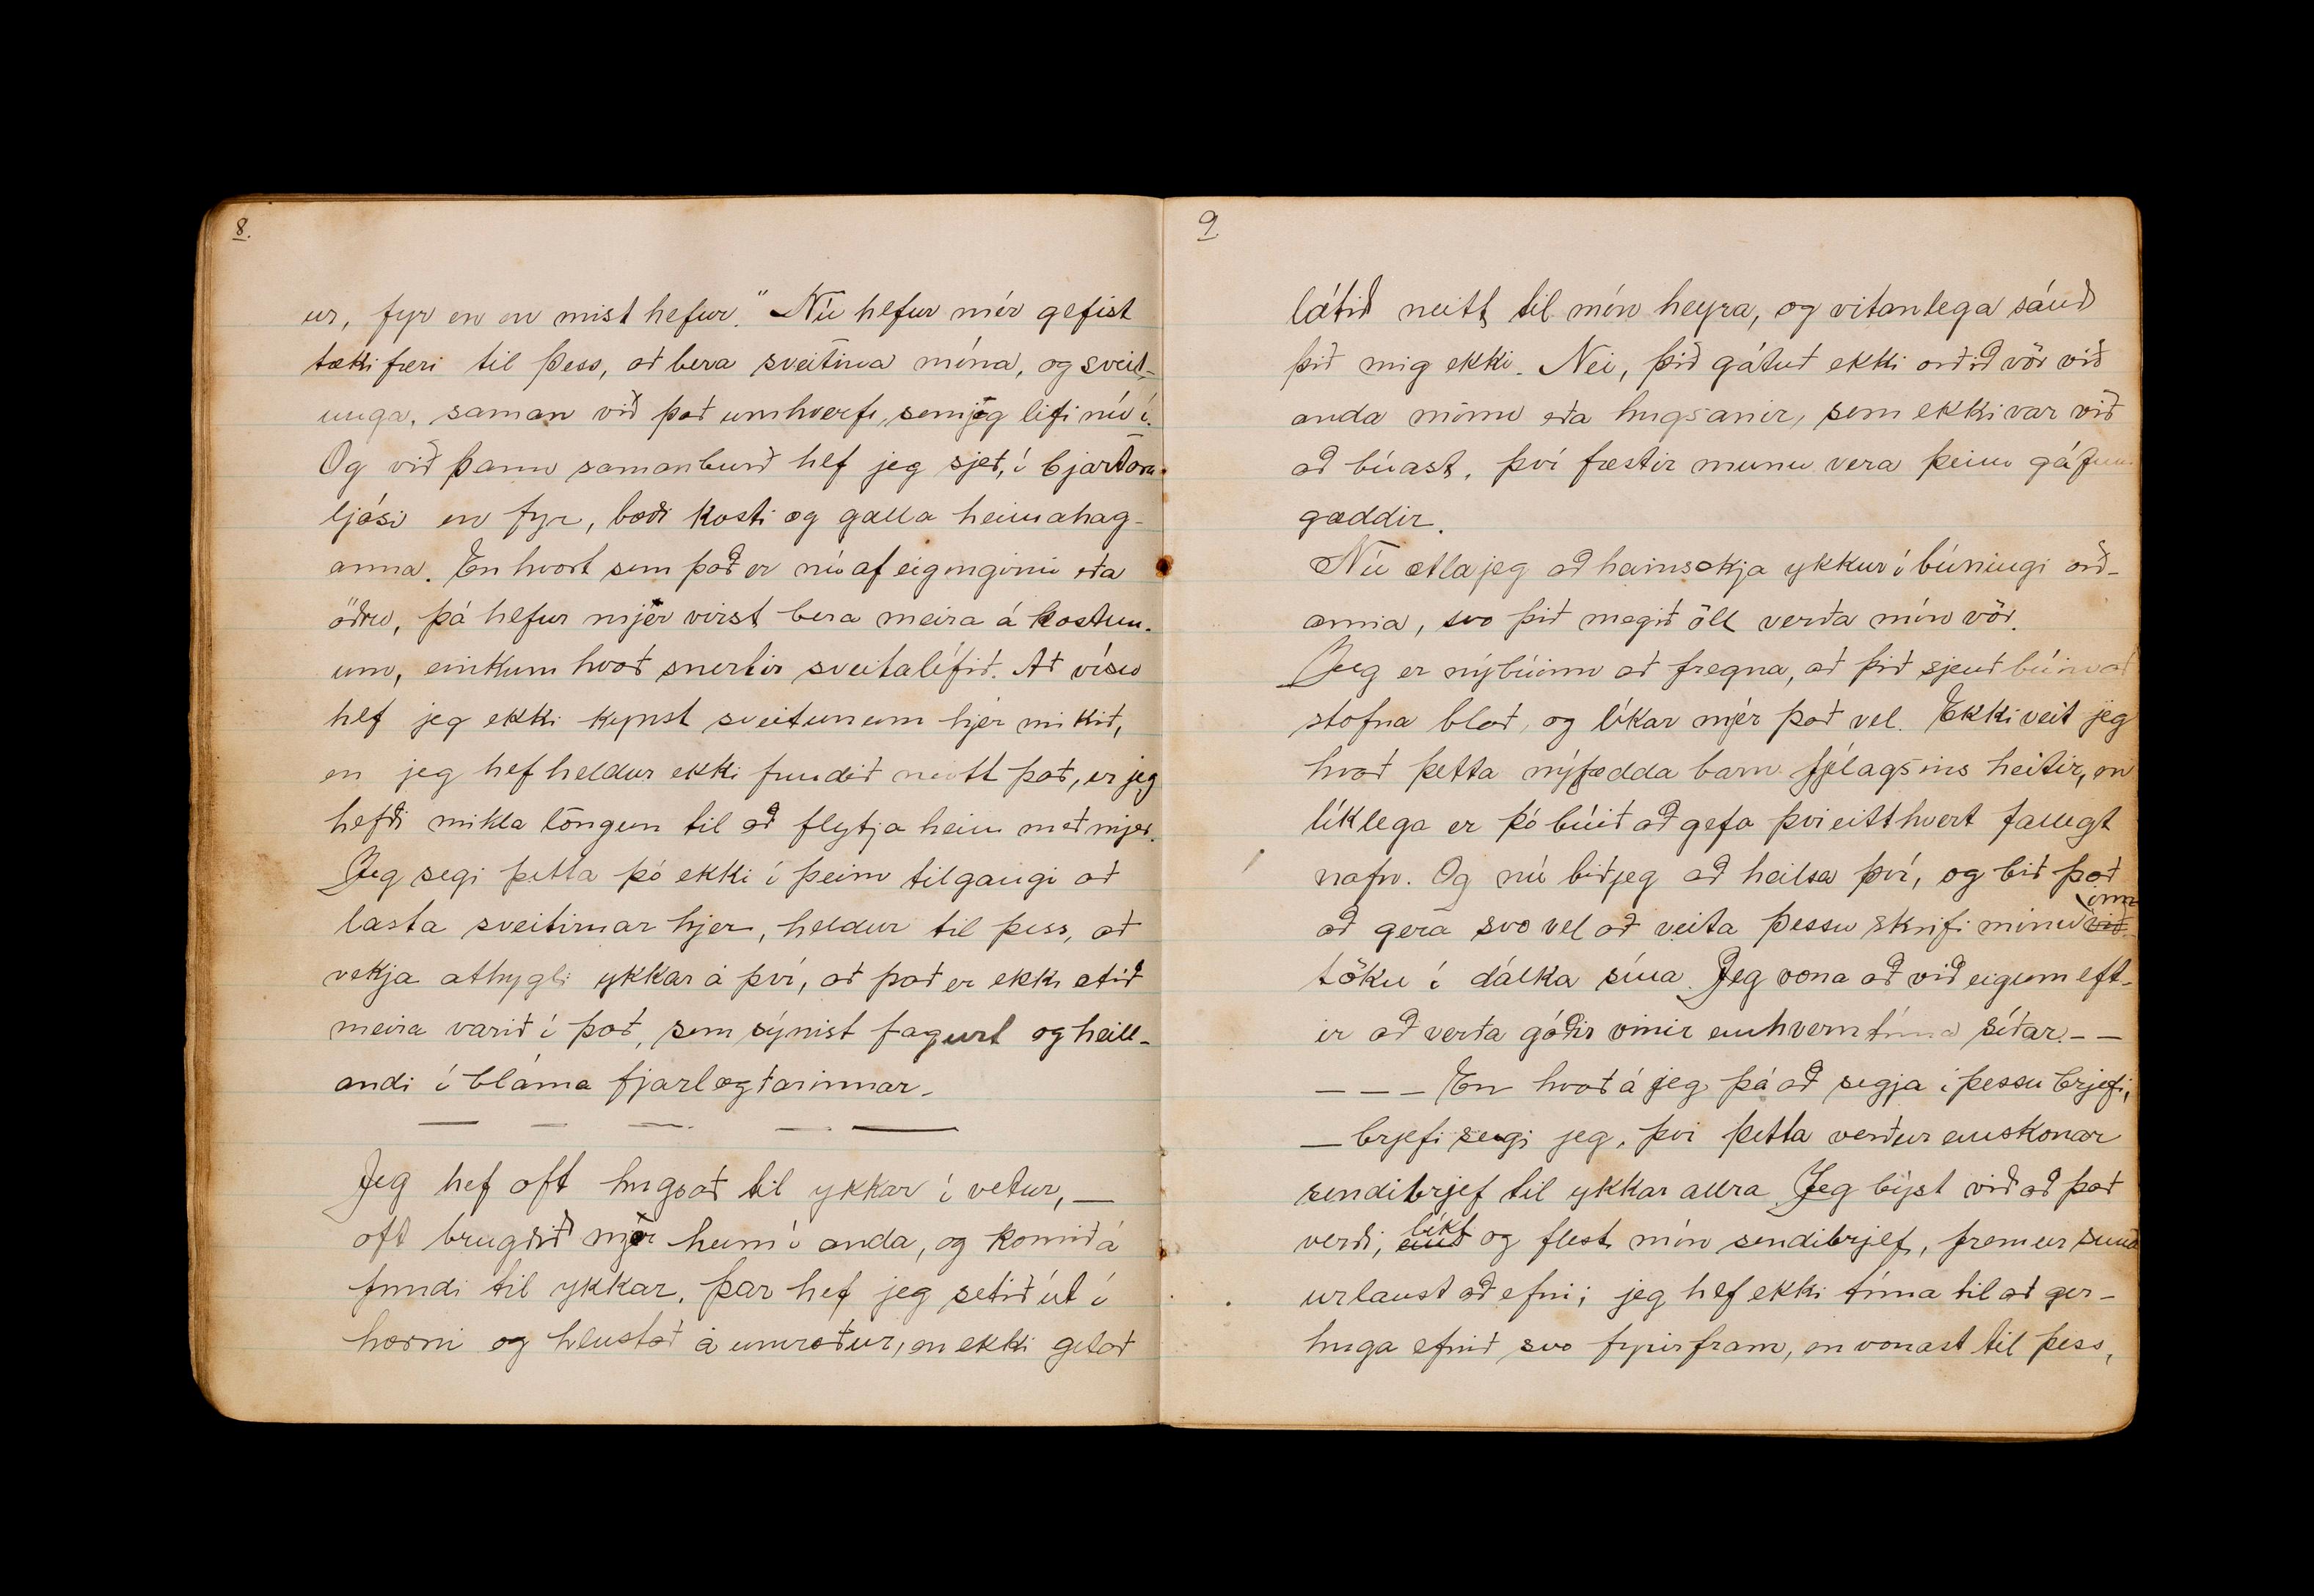 8.
ur, fyr en en mist hefur." Nú hefur mér gefist
tækifæri til þess, að bera sveitina mína, og sveit-
unga, saman við það umhverfi, sem jeg lifi nú í.
Og við þann samanburð hef jeg sjeð, í bjartara
ljósi en fyr, bæði kosti og galla heimahag-
anna. En hvort sem það er nú af eigingirni eða
öðru, þá hefur mjer virst bera meira á kostun-
um, einkum hvað snertir sveitalífið. Að vísu
hef jeg ekki kynst sveitunum hjer mikið,
en jeg hef heldur ekki fundið neitt það, er jeg
hefði mikla löngun til að flytja heim með mjer.
Jeg segi þetta þó ekki í þeim tilgangi að
lasta sveitirnar hjer, heldur til þess, að
vekja athygli ykkar á því, að það er ekki ætíð
meira varið í það, sem sýnist fagurt og heill-
andi í bláma fjarlægðarinnar.
— — — — —
Jeg hef oft hugsað til ykkar í vetur, —
oft brugðið mjer heim í anda, og komið á
fundi til ykkar. Þar hef jeg setið út í
horni og hlustað á umræður, en ekki getað
9.
látið neitt til mín heyra, og vitanlega sáuð
þið mig ekki. Nei, þið gátuð ekki orðið vör við
anda minn eða hugsanir, sem ekki var við
að búast, því fæstir munu vera þeim gáfum
gæddir.
Nú ætla jeg að heimsækja ykkur í búningi orð-
anna, svo þið megið öll verða mín vör.
Jeg er nýbúinn að fregna, að þið sjeuð búin að
stofna blað, og líkar mjér það vel. Ekki veit jeg
hvað þetta nýfædda barn fjelagsins heitir, en
líklega er þó búið að gefa því eitthvert fallegt
nafn. Og nú bið jeg að heilsa því, og bið það
að gera svo vel að veita þessu skrifi mínu við inn
töku í dálka sína. Jeg vona að við eigum eft-
ir að verða góðir vinir einhverntíma síðar. — —
— — — En hvað á jeg þá að segja í þessu brjefi,
— brjefi segi jeg, því þetta verður einskonar
sendibrjef til ykkar allra. Jeg býst við að það
verði, eins líkt og flest mín sendibrjef, fremur sund
urlaust að efni; jeg hef ekki tíma til að ger-
huga efnið svo fyrirfram, en vonast til þess,